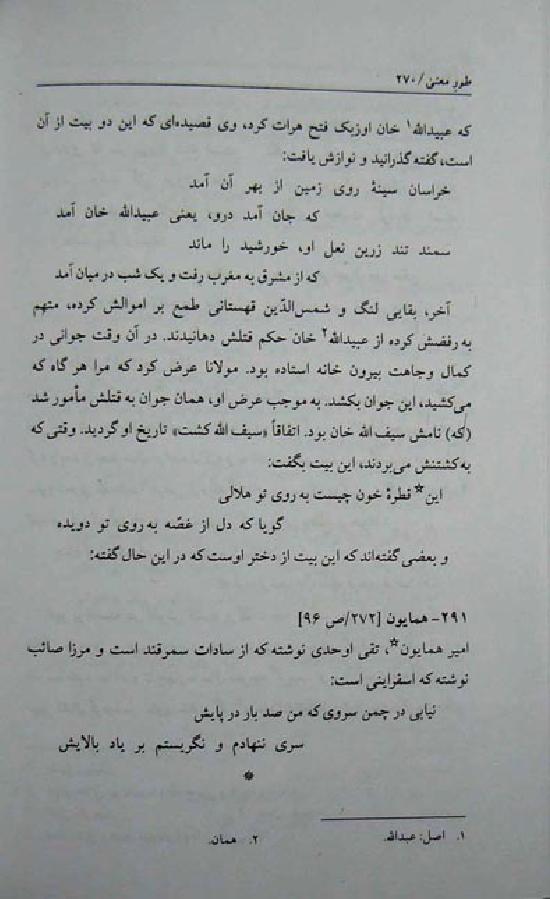 طور معنی / ۲۷۰
که عبیدالله۱ خان اوزبک فتح هرات کرد، وی قصیده‌ای که این دو بیت از آن
است، گفته گذرانید و نوازش یافت:
خراسان سینهٔ روی زمین از بهر آن آمد
که جان آمد درو، یعنی عبیدالله خان آمد
سمند تند زرین نعل او، خورشید را ماند
که از مشرق به مغرب رفت و یک شب در میان آمد
آخر، بقایی لنگ و شمس‌الدّین قهستانی طمع بر اموالش کرده، متهم
به رفضش کرده از عبیدالله۲ خان حکم قتلش دهانیدند. در آن وقت جوانی در
کمال وجاهت بیرون خانه استاده بود. مولانا عرض کرد که مرا هر گاه که
می‌کشید، این جوان بکشد. به موجب عرض او، همان جوان به قتلش مأمور شد
(که) نامش سیف الله خان بود. اتفاقاً «سیف الله کشت» تاریخ او گردید. وقتی که
به کشتنش می‌بردند، این بیت بگفت:
این* قطرهٔ خون چیست به روی تو هلالی
گویا که دل از غصّه به روی تو دویده
و بعضی گفته‌اند که این بیت از دختر اوست که در این حال گفته:
۲۹۱- همایون [۲۷۲/ص ۹۶]
امیر همایون*، تقی اوحدی نوشته که از سادات سمرقند است و مرزا صائب
نوشته که اسفراینی است:
نیابی در چمن سروی که من صد بار در پایش
سری ننهادم و نگریستم بر یاد بالایش
*
۱. اصل: عبدالله. ۲. همان.